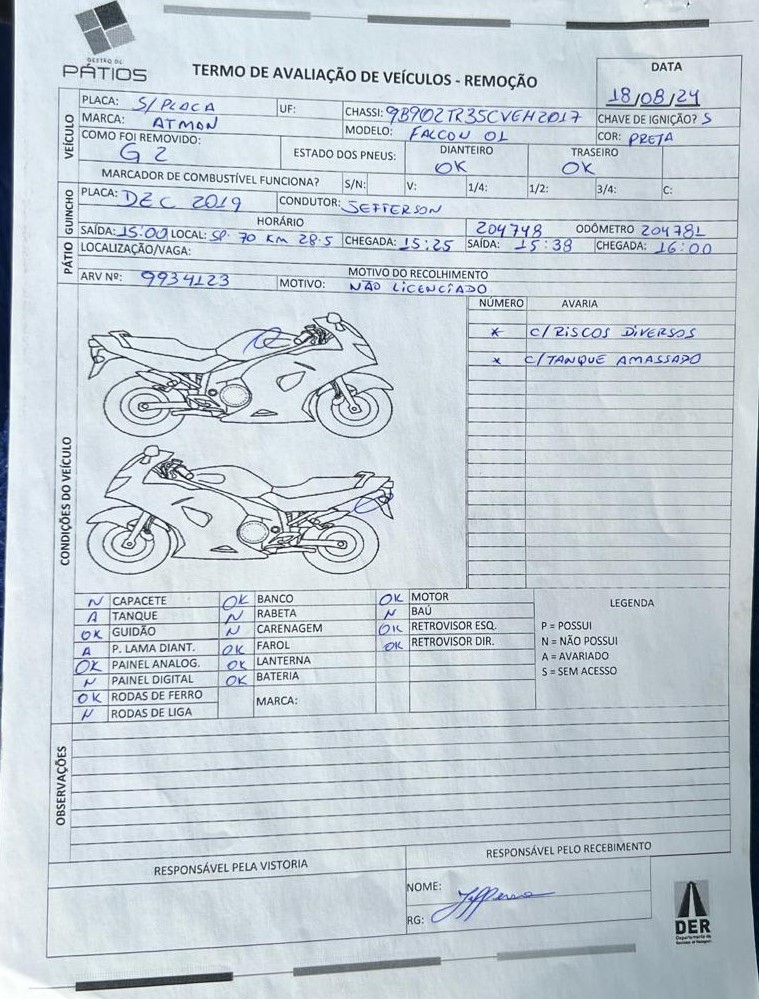 GESTÃO DE
PÁTIOS
TERMO DE AVALIAÇÃO DE VEÍCULOS - REMOÇÃO
DATA
18/08/24
VEÍCULO
PLACA: S/PLACA UF: CHASSI: 9B902TR35CVEH2017 CHAVE DE IGNIÇÃO? S
MARCA: ATMAN MODELO: FALCON 01 COR: PRETA
COMO FOI REMOVIDO: G2 ESTADO DOS PNEUS: DIANTEIRO OK TRASEIRO OK
MARCADOR DE COMBUSTÍVEL FUNCIONA? S/N: V: 1/4: 1/2: 3/4: C:
GUINCHO
PLACA: DEC 2019 CONDUTOR: JEFFERSON
HORÁRIO 204748 ODÔMETRO 204781
SAÍDA: 15:00 LOCAL: SP. 70 KM 28.5 CHEGADA: 15:25 SAÍDA: 15:38 CHEGADA: 16:00
PÁTIO
LOCALIZAÇÃO/VAGA:
MOTIVO DO RECOLHIMENTO
ARV Nº: 9934123 MOTIVO: NÃO LICENCIADO
CONDIÇÕES DO VEÍCULO
NÚMERO AVARIA
* C/RISCOS DIVERSOS
* C/TANQUE AMASSADO
N CAPACETE OK BANCO OK MOTOR
A TANQUE N RABETA N BAÚ
OK GUIDÃO N CARENAGEM OK RETROVISOR ESQ.
A P. LAMA DIANT. OK FAROL OK RETROVISOR DIR.
OK PAINEL ANALOG. OK LANTERNA
N PAINEL DIGITAL OK BATERIA
OK RODAS DE FERRO MARCA:
N RODAS DE LIGA
LEGENDA
P = POSSUI
N = NÃO POSSUI
A = AVARIADO
S = SEM ACESSO
OBSERVAÇÕES
RESPONSÁVEL PELA VISTORIA
RESPONSÁVEL PELO RECEBIMENTO
NOME:
RG:
DER